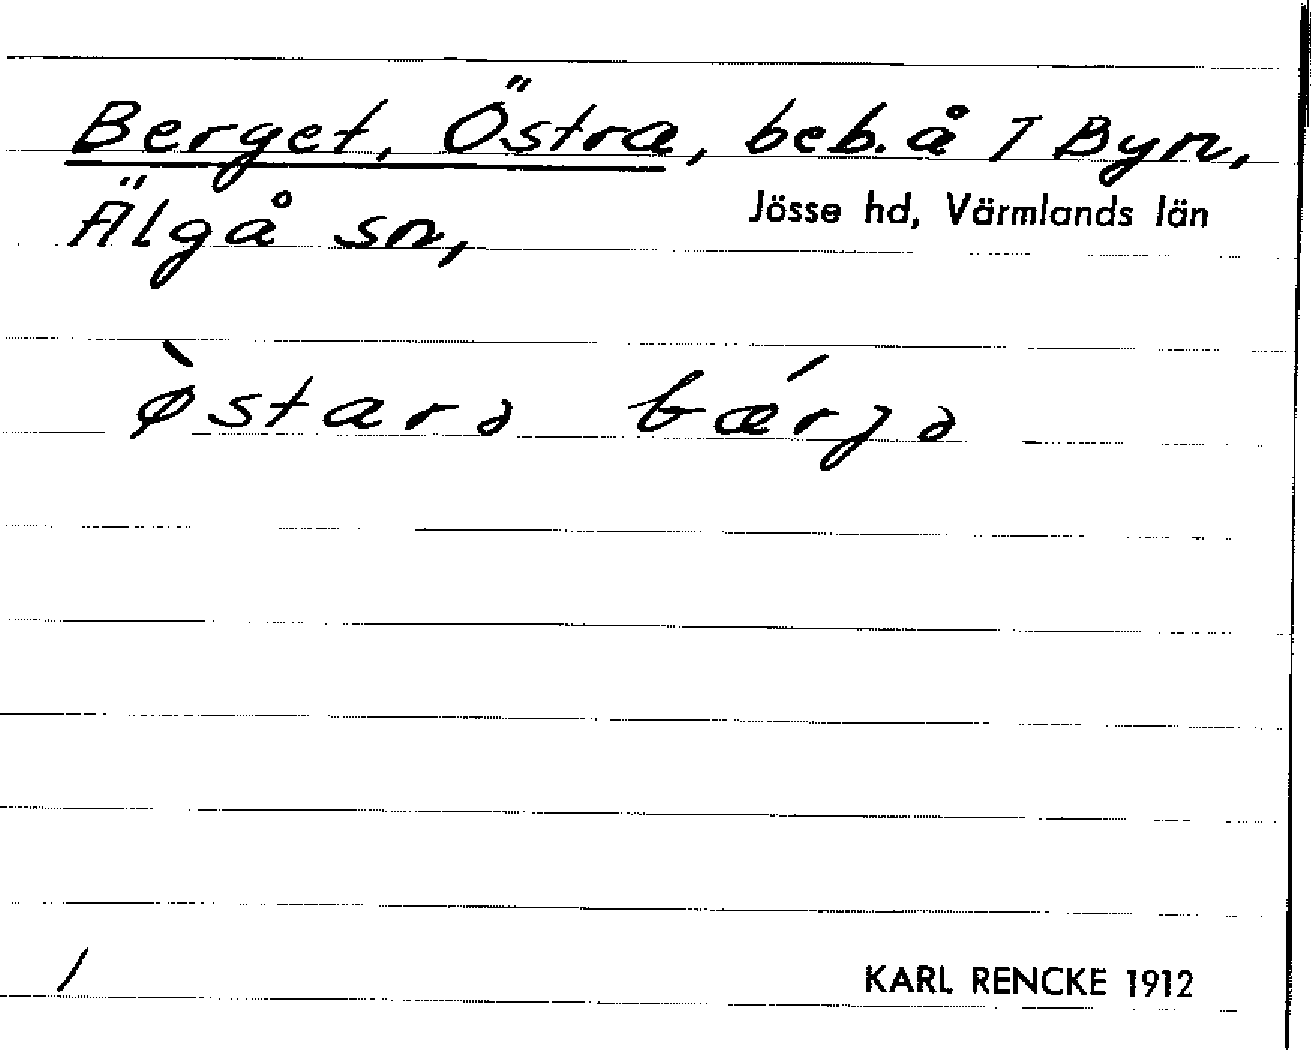 Berget, Östra, beb. å T Byn,
Älgå sn, Jösse hd, Värmlands län
ø̀starə bǽrjə
/
KARL RENCKE 1912